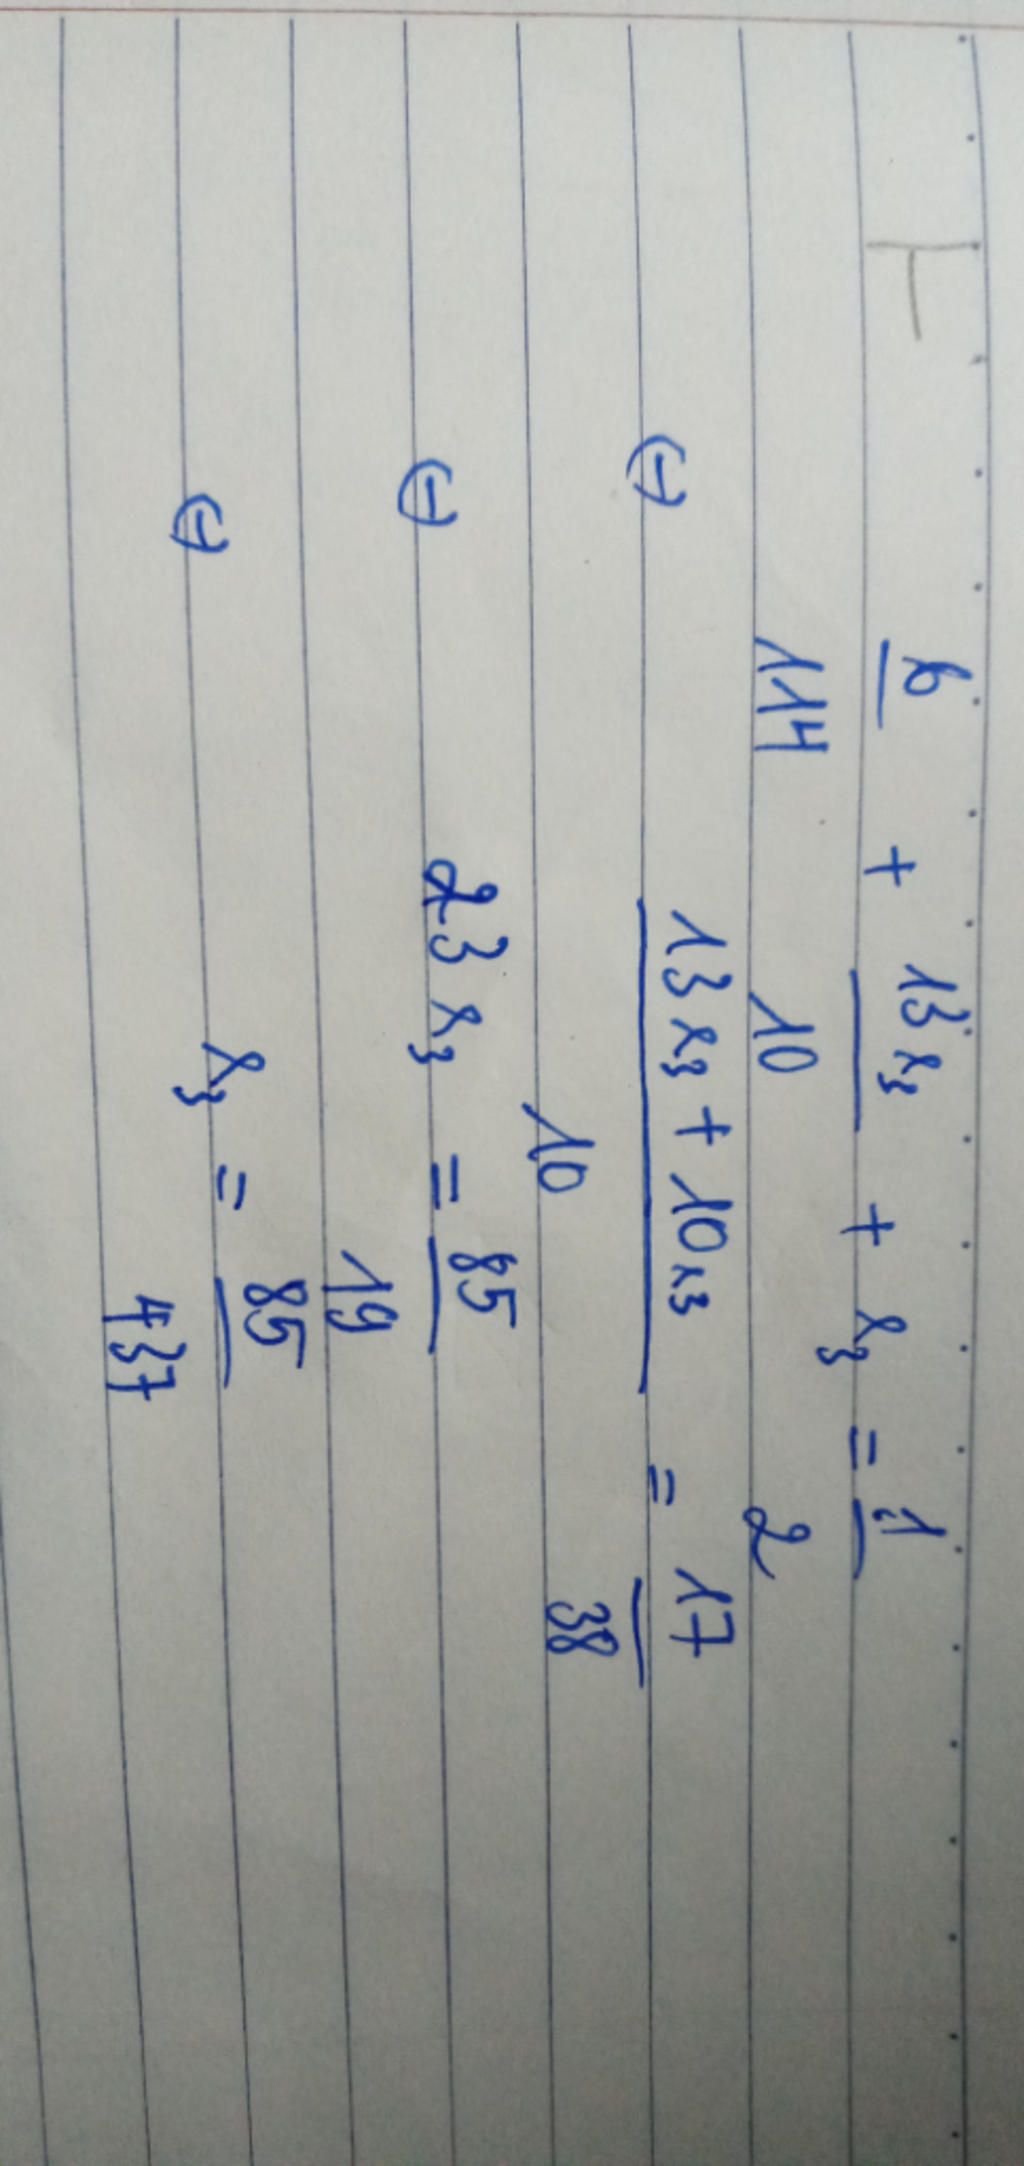 6/114 + 13x₃/10 + x₃ = 1/2
⊖ (13x₃ + 10x₃)/10 = 17/38
⊖ 23x₃ = 85/19
⊖ x₃ = 85/437